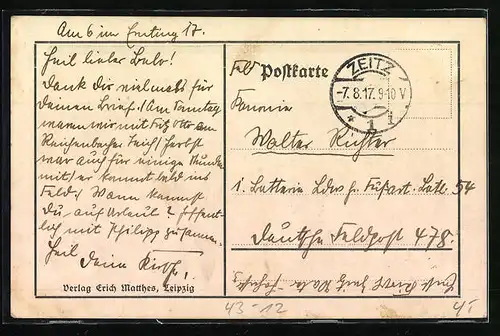 Am 6 im Ernting 17.
Heil lieber Bulo!
Dank dir vielmals für
deinen Brief. Am Sonntag
waren wir mit Fritz Otto am
Reichenbacher Teich. Herbst
war auch für einige Stunden
mit, er kommt bald ins
Feld. Wann kommst
Du auf Urlaub? Hoffent-
lich mit Philipp zusammen.
Heil
Dein
Verlag Erich Matthes, Leipzig
Feld Postkarte
ZEITZ
-7.8.17.9-10V
* 1 1
Kanonier
Walter Richter
1. Batterie Ldw. Fußart. Batl. 54
Deutsche Feldpost 478.
43-12
4,-